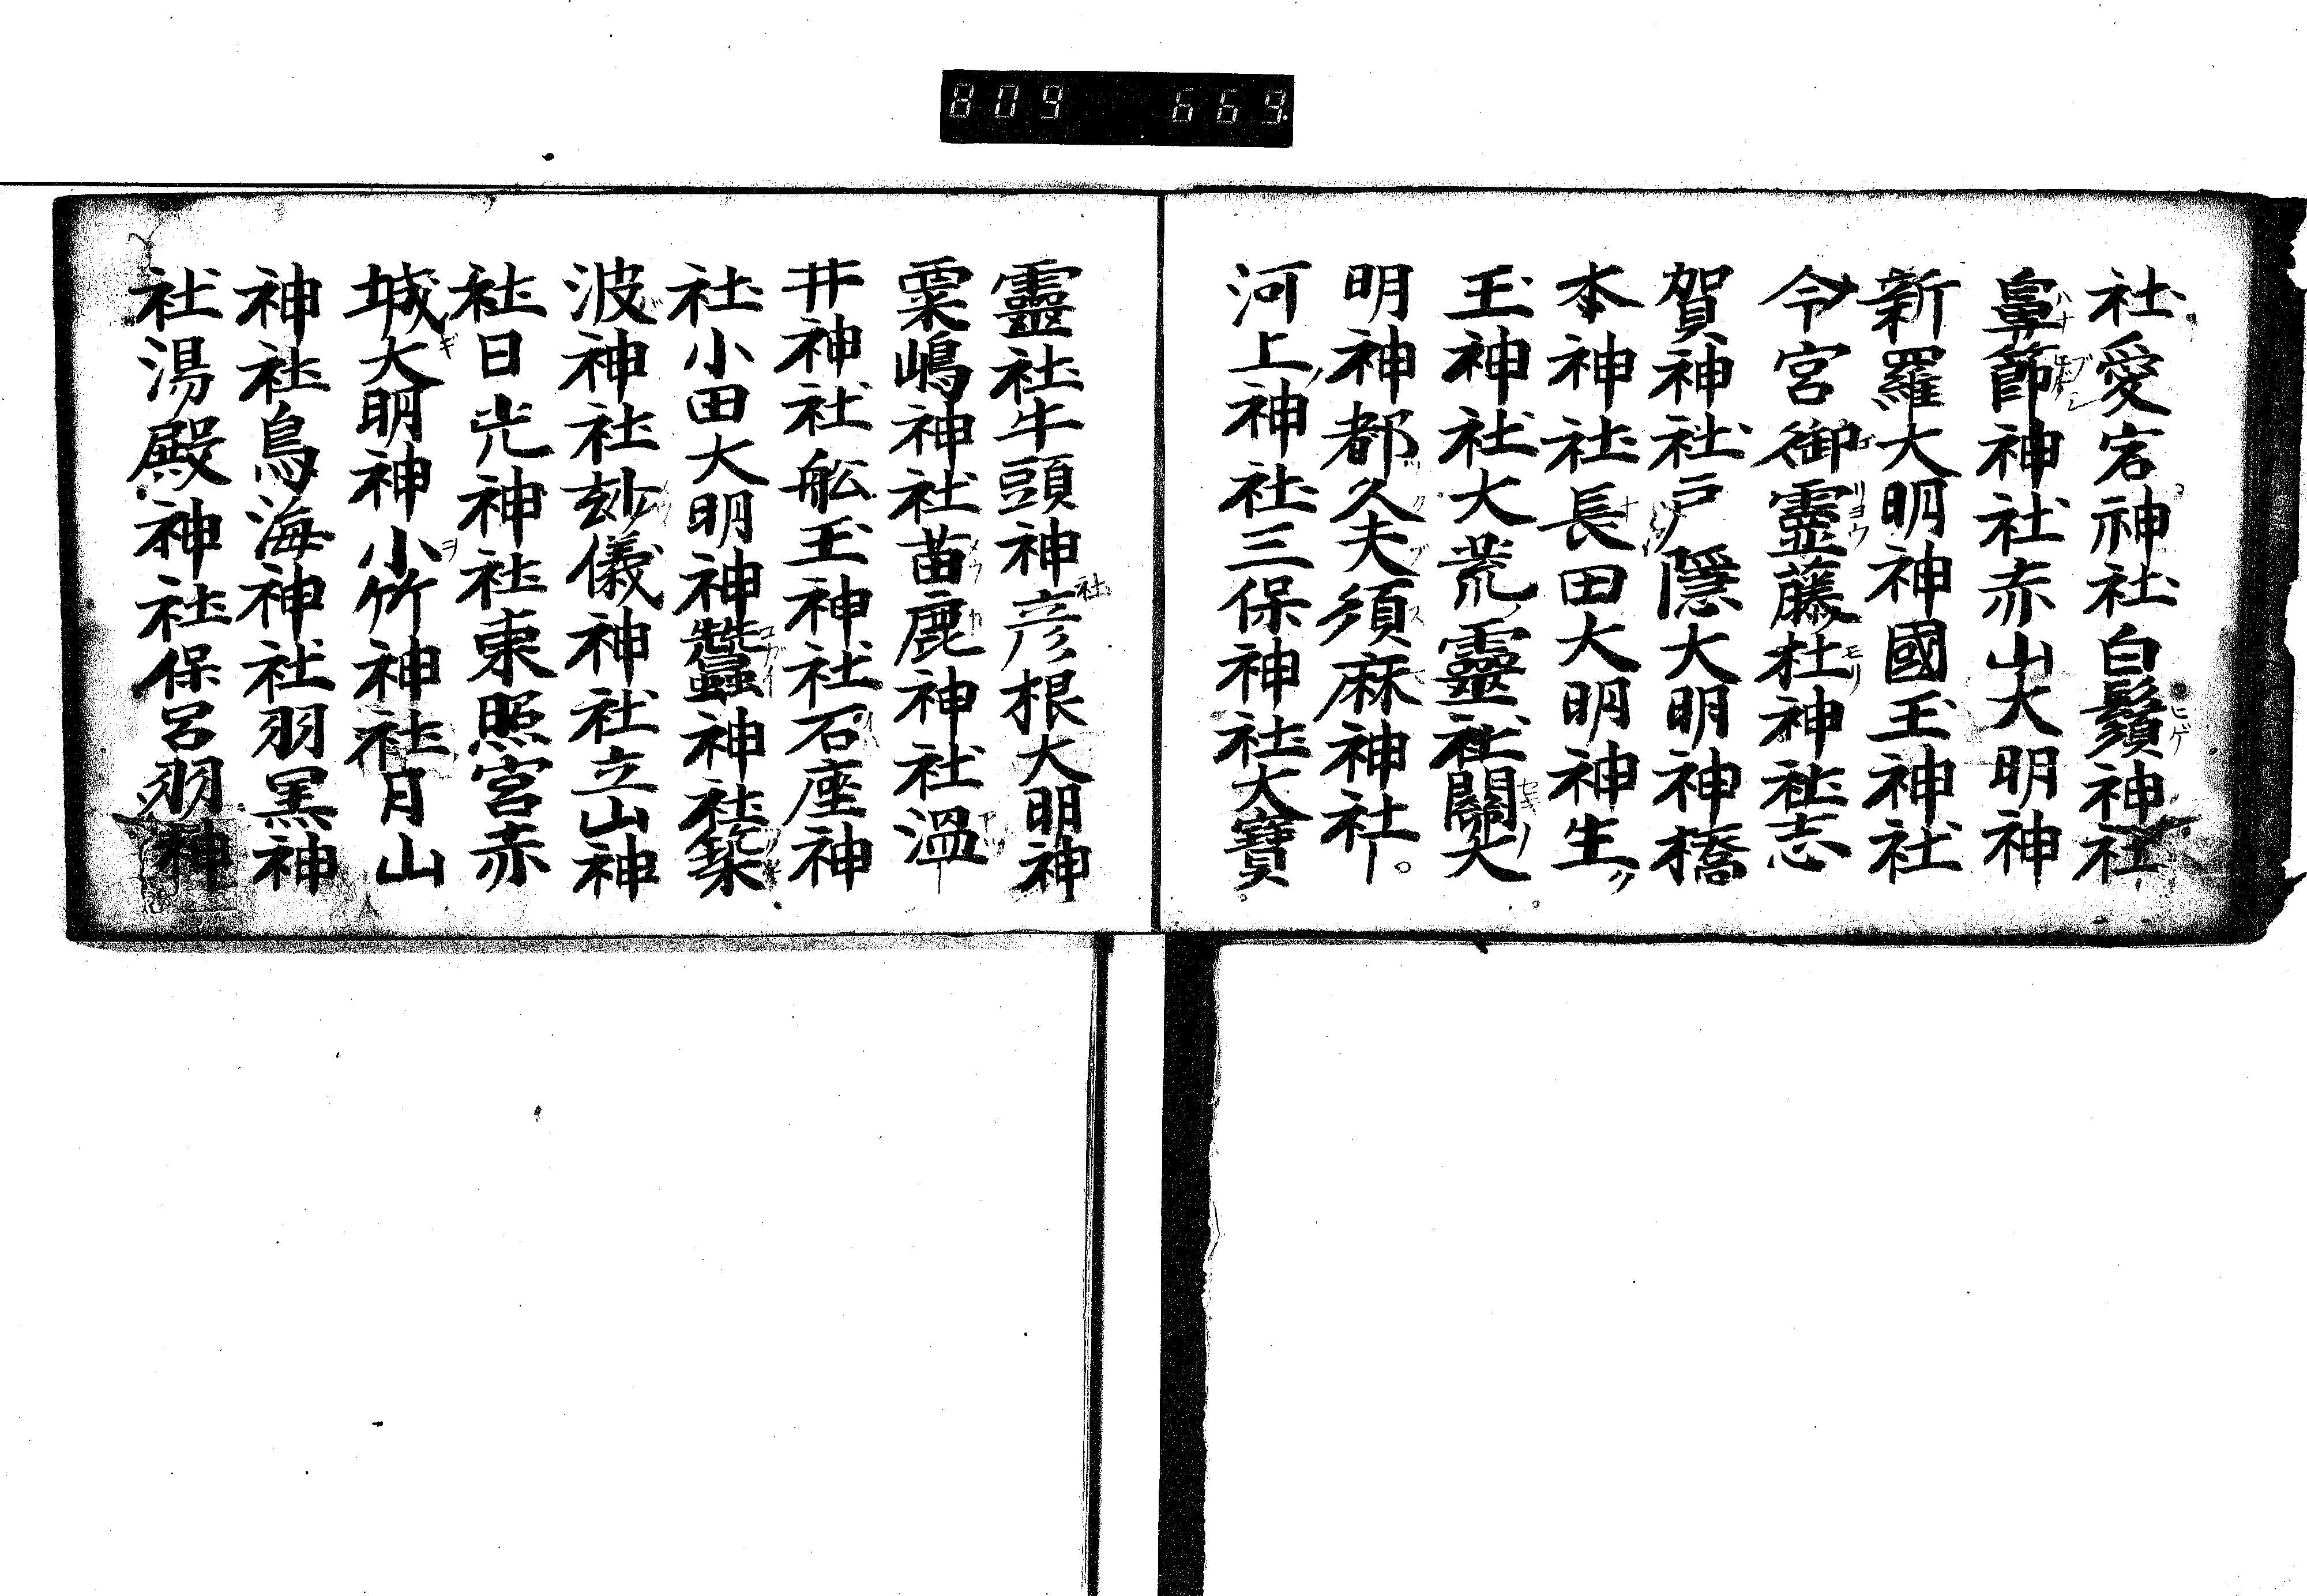 809 669
社愛宕神社白鬚神社
鼻節神社赤山大明神
新羅大明神國玉神社
今宮御霊藤杜神社志
賀神社戸隱大明神橋
本神社長田大明神生
玉神社大荒靈社關大
明神都久夫須麻神社
河上神社三保神社大寶
靈社牛頭神社彦根大明神
粟嶋神社苗鹿神社温
井神社舩玉神社石座神
社小田大明神蠶神社築
波神社玅儀神社立山神
社日光神社東照宮赤
城大明神小竹神社月山
神社鳥海神社羽黒神
社湯殿神社保呂羽神